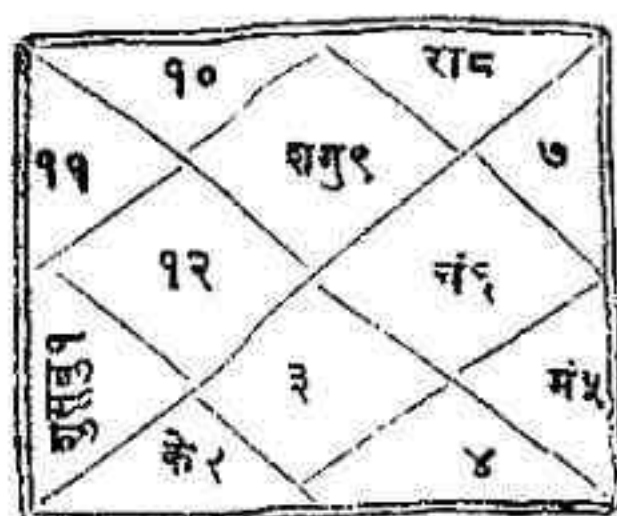 १० रा८
११ शगु९ ७
१२ चं६
शुसूबु१ ३ मं५
के२ ४